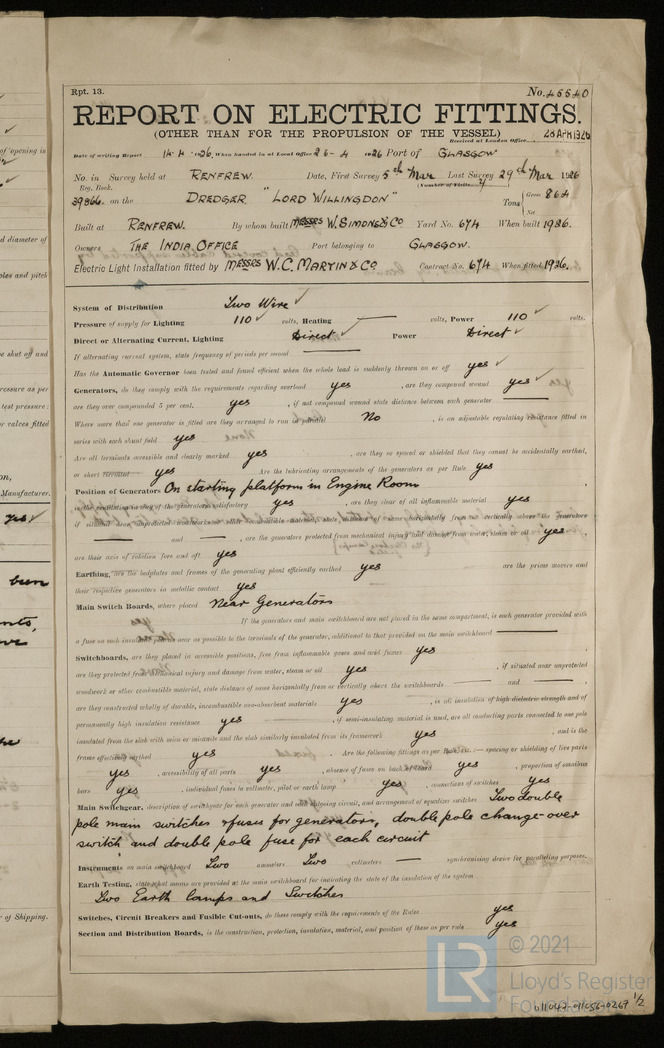 Rpt. 13.
No. 45540
REPORT ON ELECTRIC FITTINGS.
(OTHER THAN FOR THE PROPULSION OF THE VESSEL)
Received at London Office 28 APR 1926
Date of writing Report 14.4.1926 When handed in at Local Office 26-4 1926 Port of GLASGOW
No. in Survey held at RENFREW. Date, First Survey 5th Mar Last Survey 29th Mar 1926
Reg. Book. (Number of Visits 4)
39366 on the DREDGER "LORD WILLINGDON" Tons { Gross 864
Net
Built at RENFREW. By whom built MESSRS W. SIMONS & CO Yard No. 674 When built 1926.
Owners THE INDIA OFFICE Port belonging to GLASGOW.
Electric Light Installation fitted by MESSRS W.C. MARTIN & CO. Contract No. 674 When fitted 1926.
System of Distribution Two Wire ✓
Pressure of supply for Lighting 110 ✓ volts, Heating — volts, Power 110 ✓ volts.
Direct or Alternating Current, Lighting Direct ✓ Power Direct ✓
If alternating current system, state frequency of periods per second —
Has the Automatic Governor been tested and found efficient when the whole load is suddenly thrown on or off yes ✓
Generators, do they comply with the requirements regarding overload yes , are they compound wound yes ✓
are they over compounded 5 per cent. yes , if not compound wound state distance between each generator —
Where more than one generator is fitted are they arranged to run in parallel No , is an adjustable regulating resistance fitted in
series with each shunt field yes
Are all terminals accessible and clearly marked yes , are they so spaced or shielded that they cannot be accidentally earthed,
or short circuited yes Are the lubricating arrangements of the generators as per Rule yes
Position of Generators On starting platform in Engine Room
is the ventilation in way of the generators satisfactory yes , are they clear of all inflammable material yes
if situated near unprotected woodwork or other combustible material, state distance of same horizontally from or vertically above the generators
— and — , are the generators protected from mechanical injury and damage from water, steam or oil yes
are their axis of rotation fore and aft yes
Earthing, are the bedplates and frames of the generating plant efficiently earthed yes are the prime movers and
their respective generators in metallic contact yes
Main Switch Boards, where placed Near Generators
If the generators and main switchboard are not placed in the same compartment, is each generator provided with
a fuse on each insulated pole as near as possible to the terminals of the generator, additional to that provided on the main switchboard —
Switchboards, are they placed in accessible positions, free from inflammable gases and acid fumes yes
are they protected from mechanical injury and damage from water, steam or oil yes , if situated near unprotected
woodwork or other combustible material, state distance of same horizontally from or vertically above the switchboards — and —
are they constructed wholly of durable, incombustible non-absorbent materials yes , is all insulation of high dielectric strength and of
permanently high insulation resistance yes , if semi-insulating material is used, are all conducting parts connected to one pole
insulated from the slab with mica or micanite and the slab similarly insulated from its framework yes , and is the
frame effectively earthed yes . Are the following fittings as per Rule, viz. :— spacing or shielding of live parts
yes , accessibility of all parts yes , absence of fuses on back of board yes , proportion of omnibus
bars yes , individual fuses to voltmeter, pilot or earth lamp yes , connections of switches yes
Main Switchgear, description of switchgear for each generator and each outgoing circuit, and arrangement of equalizer switches Two double
pole main switches & fuses for generators, double pole change-over
switch and double pole fuse for each circuit
Instruments on main switchboard Two ammeters Two voltmeters — synchronising device for paralleling purposes.
Earth Testing, state what means are provided at the main switchboard for indicating the state of the insulation of the system
Two Earth Lamps and Switches
Switches, Circuit Breakers and Fusible Cut-outs, do these comply with the requirements of the Rules yes
Section and Distribution Boards, is the construction, protection, insulation, material, and position of these as per rule yes
© 2021
LR
Lloyd's Register
Foundation
011047-011056-0267 1/2